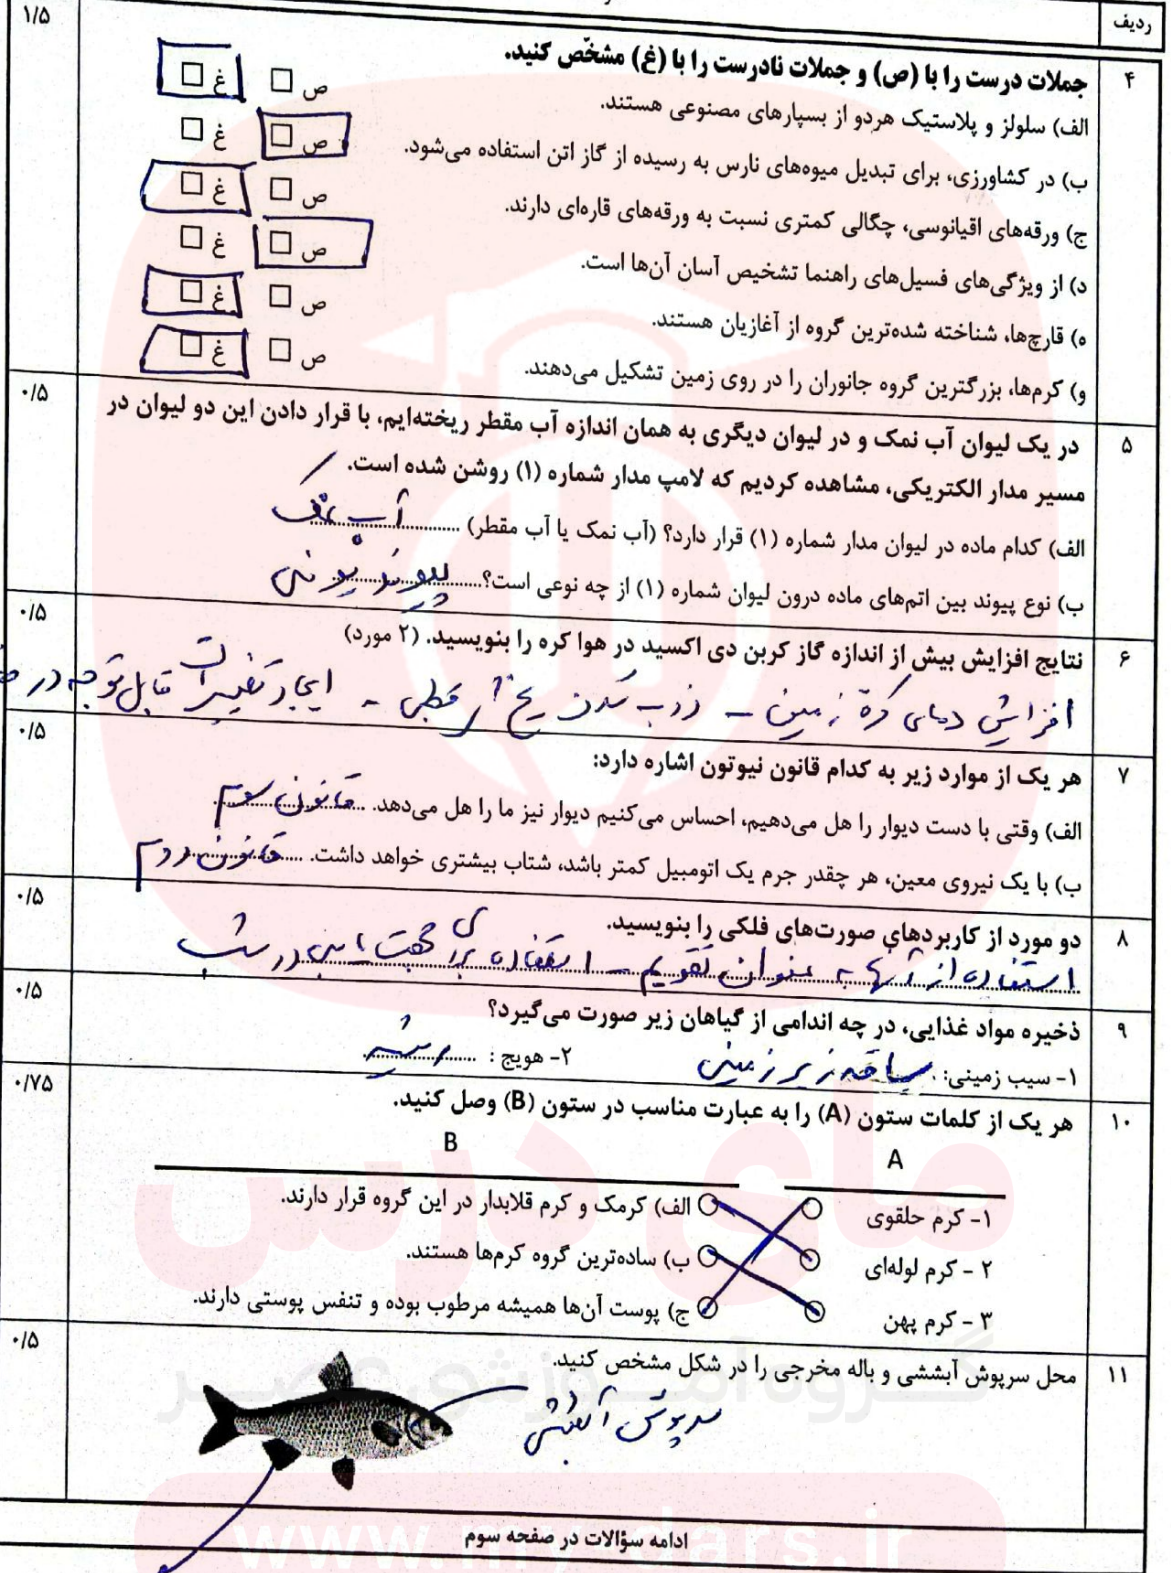 ردیف
۱/۵
۴
جملات درست را با (ص) و جملات نادرست را با (غ) مشخّص کنید.
الف) سلولز و پلاستیک هردو از بسپارهای مصنوعی هستند. ص □ غ □
ب) در کشاورزی، برای تبدیل میوه‌های نارس به رسیده از گاز اتن استفاده می‌شود. ص □ غ □
ج) ورقه‌های اقیانوسی، چگالی کمتری نسبت به ورقه‌های قاره‌ای دارند. ص □ غ □
د) از ویژگی‌های فسیل‌های راهنما تشخیص آسان آن‌ها است. ص □ غ □
ه) قارچ‌ها، شناخته شده‌ترین گروه از آغازیان هستند. ص □ غ □
و) کرم‌ها، بزرگترین گروه جانوران را در روی زمین تشکیل می‌دهند. ص □ غ □
۰/۵
۵
در یک لیوان آب نمک و در لیوان دیگری به همان اندازه آب مقطر ریخته‌ایم، با قرار دادن این دو لیوان در
مسیر مدار الکتریکی، مشاهده کردیم که لامپ مدار شماره (۱) روشن شده است.
الف) کدام ماده در لیوان مدار شماره (۱) قرار دارد؟ (آب نمک یا آب مقطر) آب نمک
ب) نوع پیوند بین اتم‌های ماده درون لیوان شماره (۱) از چه نوعی است؟ پیوند یونی
۰/۵
۶
نتایج افزایش بیش از اندازه گاز کربن دی اکسید در هوا کره را بنویسید. (۲ مورد)
افزایش دمای کرهٔ زمین - ذوب شدن یخ های قطبی - ایجاد تغییرات قابل توجه در
۰/۵
۷
هر یک از موارد زیر به کدام قانون نیوتون اشاره دارد:
الف) وقتی با دست دیوار را هل می‌دهیم، احساس می‌کنیم دیوار نیز ما را هل می‌دهد. قانون سوم
ب) با یک نیروی معین، هر چقدر جرم یک اتومبیل کمتر باشد، شتاب بیشتری خواهد داشت. قانون دوم
۰/۵
۸
دو مورد از کاربردهای صورت‌های فلکی را بنویسید.
استفاده از آنها به عنوان تقویم - استفاده برای جهت یابی در شب
۰/۵
۹
ذخیره مواد غذایی، در چه اندامی از گیاهان زیر صورت می‌گیرد؟
۱- سیب زمینی: ساقه زیر زمینی ۲- هویج : ریشه
۰/۷۵
۱۰
هر یک از کلمات ستون (A) را به عبارت مناسب در ستون (B) وصل کنید.
A B
۱- کرم حلقوی الف) کرمک و کرم قلابدار در این گروه قرار دارند.
۲ - کرم لوله‌ای ب) ساده‌ترین گروه کرم‌ها هستند.
۳ - کرم پهن ج) پوست آن‌ها همیشه مرطوب بوده و تنفس پوستی دارند.
۰/۵
۱۱
محل سرپوش آبششی و باله مخرجی را در شکل مشخص کنید.
سرپوش آبششی
ادامه سؤالات در صفحه سوم
مای درس
گروه آموزشی عصر
www.my-dars.ir